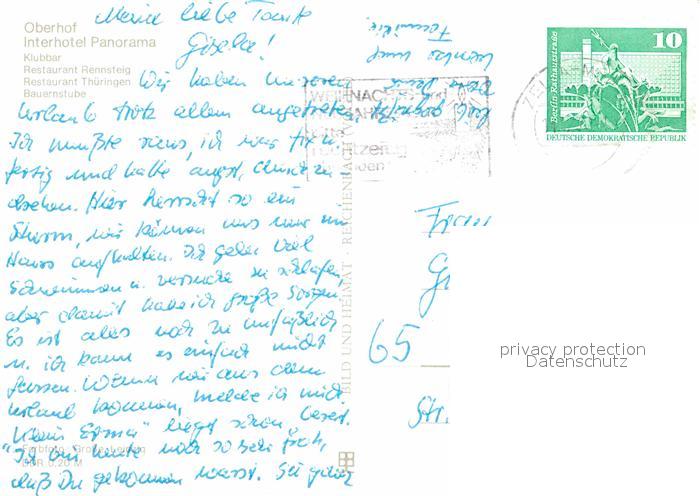 Oberhof
Interhotel Panorama
Klubbar
Restaurant Rennsteig
Restaurant Thüringen
Bauernstube
Meine liebe Tante
Gisela!
Wir haben unseren
Urlaub trotz allem angetreten.
Ich mußte raus, ich war fix u.
fertig und hatte Angst, durchzu-
drehen. Hier herrscht so ein
Sturm, wir können uns nur im
Haus aufhalten. Ich gehe viel
schwimmen u. versuche zu schlafen,
aber damit habe ich große Sorgen.
Es ist alles noch so unfaßlich
u. ich kann es einfach nicht
fassen. Wenn wir aus dem
Urlaub kommen, melde ich mich.
liegt schön,
"Ich bin heute noch so sehr froh,
daß Du gekommen warst. Sei ganz
lieb gegrüßt
Familie
Farbfoto: Große,
DDR 0,20 M
BILD UND HEIMAT · REICHENBACH
WEIHNACHT
10
Berlin, Rathausstraße
DEUTSCHE DEMOKRATISCHE REPUBLIK
65
Str.
privacy protection
Datenschutz